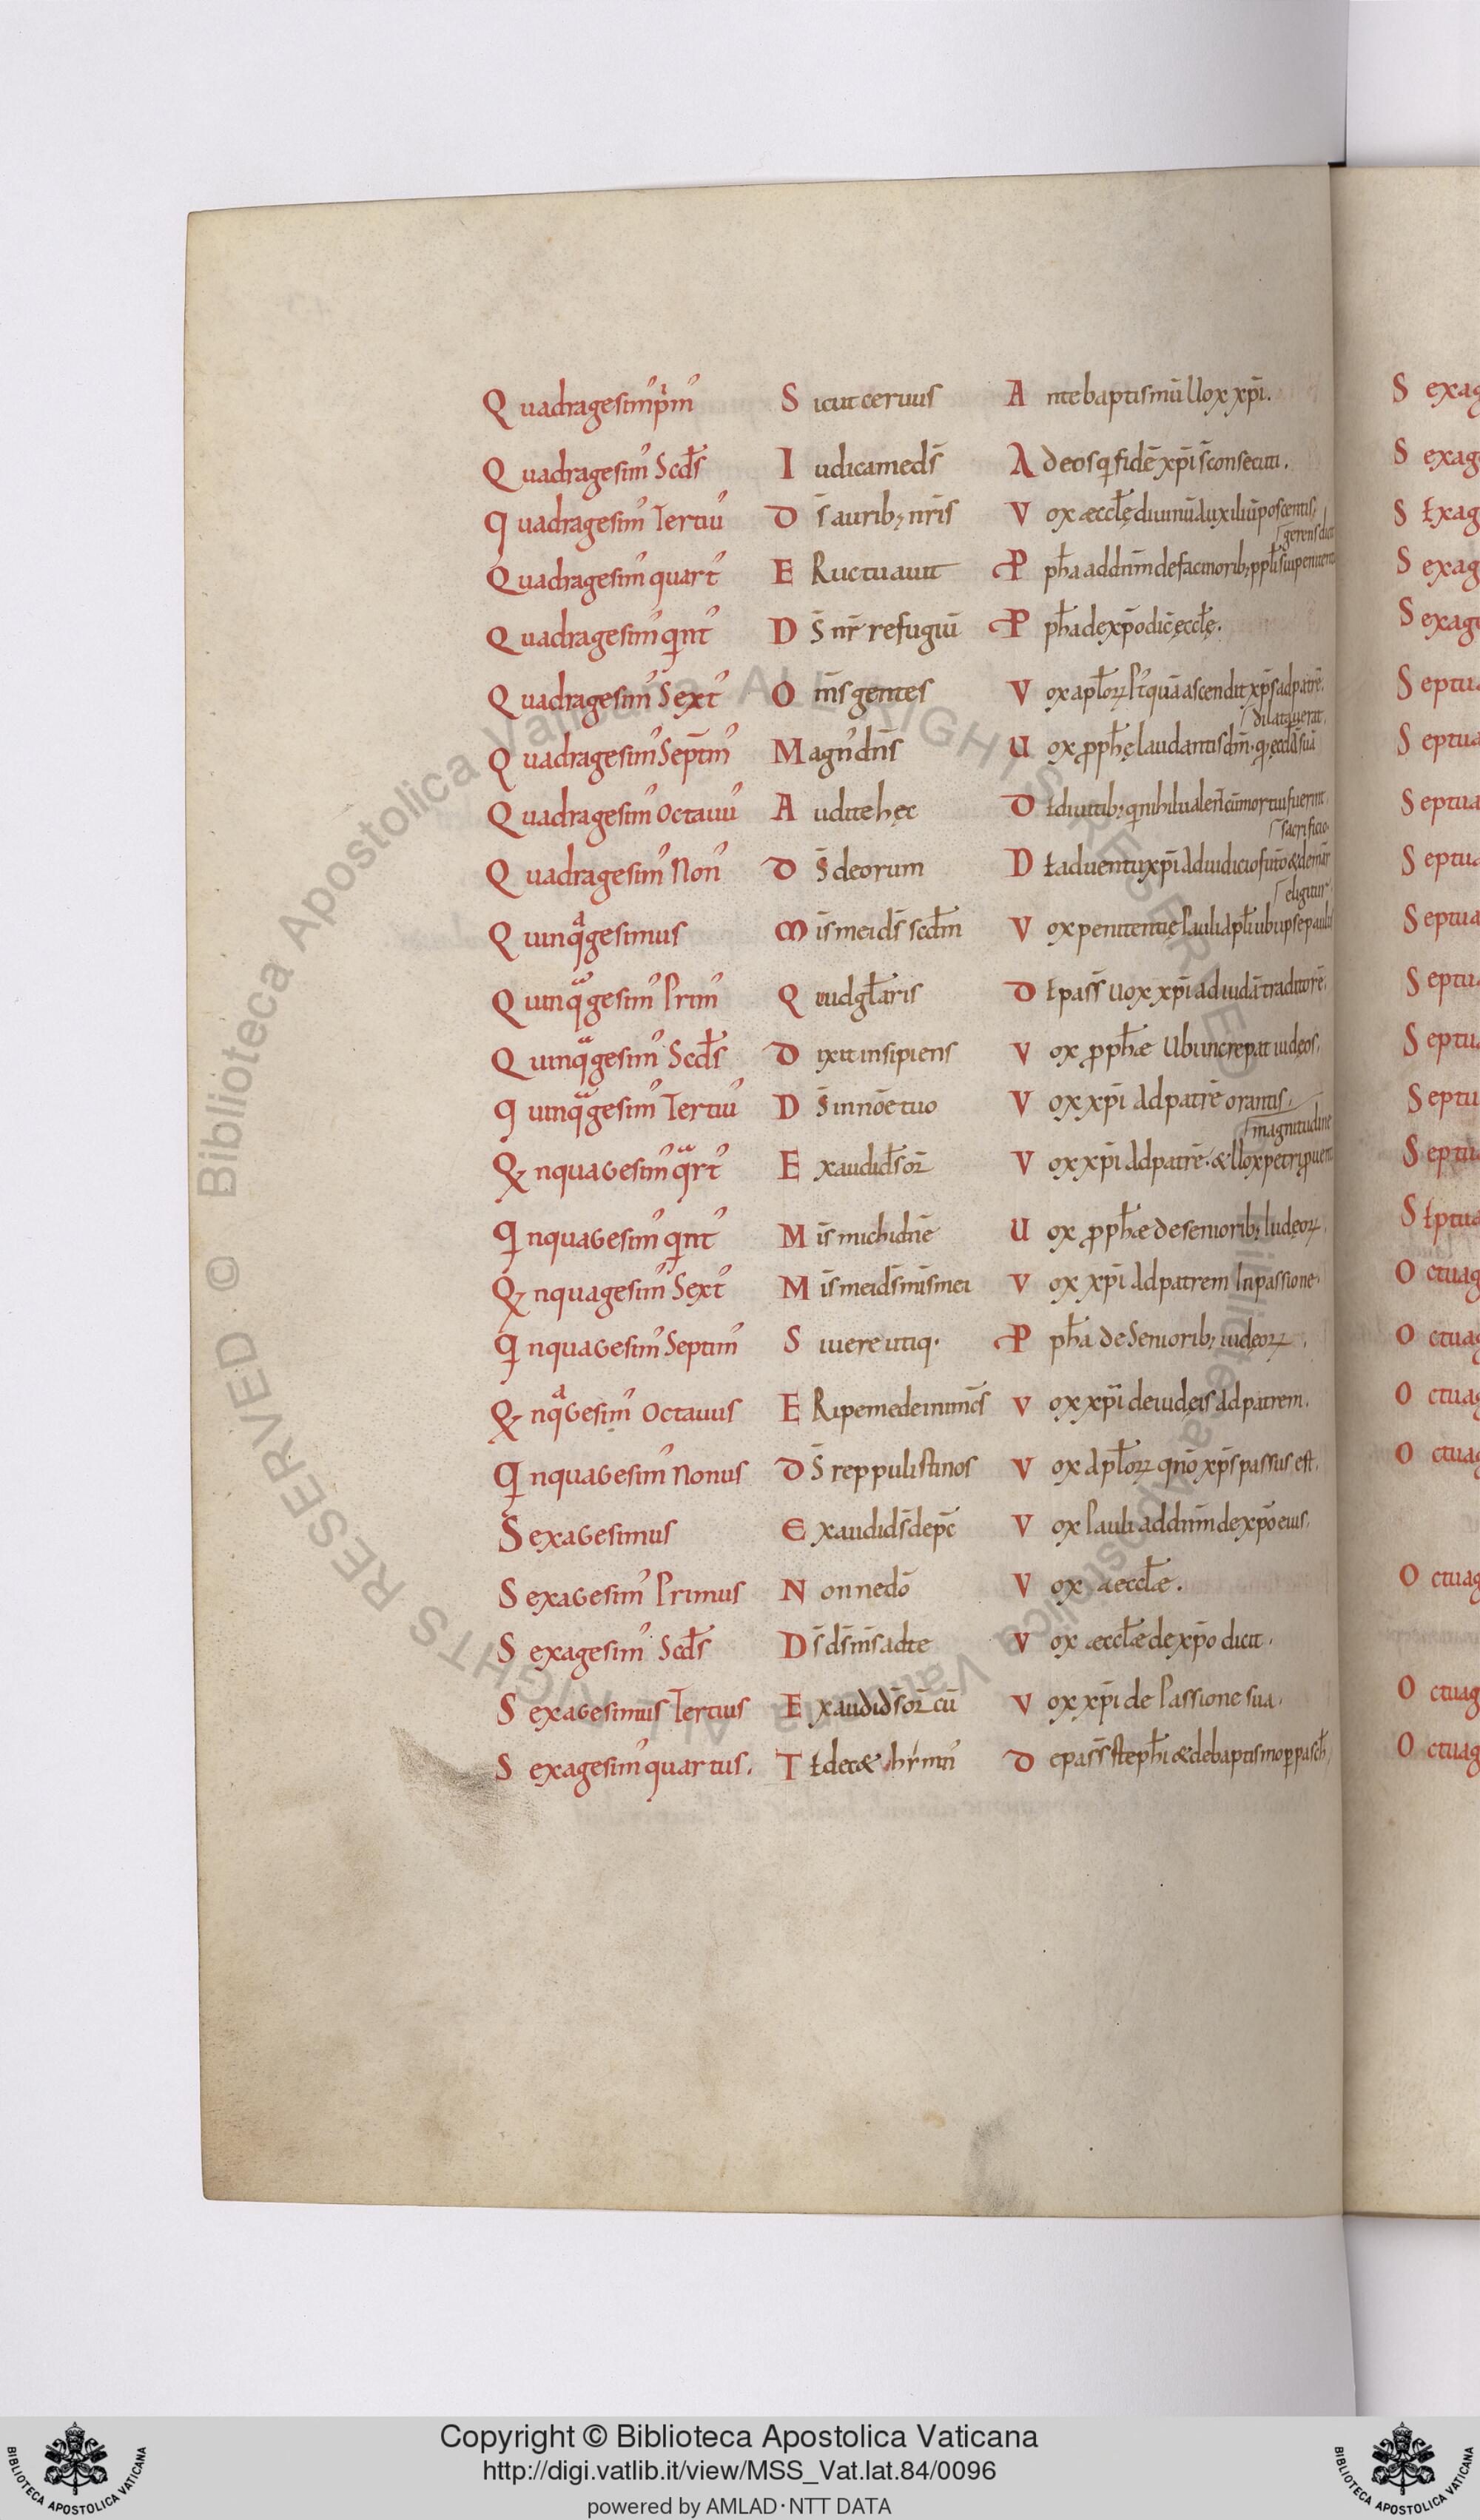 Quadragesim᾽ p̄m᾽ Sicut ceruus Ante baptismū Uox xp̄i.
Quadragesim᾽ Scd̄s Iudica me ds̄ Ad eos q fidē xp̄i s̄ consecuti.
Quadragesim᾽ Tertiu᾽ Ds̄ aurib; nr̄is Vox æccłę diuinū auxiliū poscentis;
Quadragesim᾽ quart᾽ ERuctauit Pph̄a ad dnm̄ de facinorib; ppłi sui
Quadragesim᾽ qint᾽ Ds̄ nr̄ refugiū Pph̄a de xp̄o dic̄ ęccłę.
Quadragesim᾽ Sext᾽ Om̄s gentes Vox apłoꝝ P᾽t quā ascendit xp̄s ad patrē.
dilatauerat.
Quadragesim᾽ Septim᾽ Magn᾽ dn̄s Uox pph̄ę laudantis dm̄. q ęccłā suā
Quadragesim᾽ Octauu᾽ Audite hęc Dł diuitib; q nihil ualen̄t cū mortui fuerint.
sacrificio.
Quadragesim᾽ Non᾽ Ds̄ deorum Dł aduentu xp̄i
eligitur.
Quinqagesimus Mis̄ mei ds̄ scd̄m Vox penitentię Pauli apłi ubi ipse paulus
Quinqagesim᾽ Prim᾽ Quid głaris Dł pass̄ Uox xp̄i ad iudā traditorē.
Quinqagesim᾽ Scd̄s Dixit insipiens Vox pph̄æ Ubi increpat iudeos.
Quinqagesim᾽ Tertiu᾽ Ds̄ in nōe tuo Vox xp̄i Ad patrē orantis.
magnitudine
Qinquagesim᾽ qart᾽ Exaudi ds̄ or̄ Vox xp̄i Ad patrē. & Uox petri
Qinquagesim᾽ qint᾽ Mis̄ michi dn̄e Uox pph̄æ de seniorib; Iudęoꝝ.
Qinquagesim᾽ Sext᾽ Mis̄ mei ds̄ mis̄ mei Vox xp̄i Ad patrem In passione.
Qinquagesim᾽ Septim᾽ Si uere utiq. Pph̄a de Seniorib; iudęoꝝ.
Qinqagesim᾽ Octauus ERipe me de inimic̄s Vox xp̄i de iudęis Ad patrem.
Qinquagesim᾽ Nonus Ds̄ reppulisti nos Vox Apłoꝝ qn̄o xp̄s passus est.
Sexagesimus Exaudi ds̄ dep̄c Vox Pauli ad dnm̄ de xp̄o eius.
Sexagesim᾽ Primus Nonne dō Vox aecclæ.
Sexagesim᾽ Scd̄s Ds̄ ds̄ m̄s ad te Vox æcclæ de xp̄o dicit.
Sexagesimus Tertius Exaudi ds̄ or̄ cū Vox xp̄i de Passione sua.
Sexagesim᾽ quartus. Tł dec& hymn᾽ De pass̄ steph̄i & de baptismo p pasch̄.
Copyright © Biblioteca Apostolica Vaticana
http://digi.vatlib.it/view/MSS_Vat.lat.84/0096
powered by AMLAD·NTT DATA
BIBLIOTECA APOSTOLICA VATICANA
BIBLIOTECA APOSTOLICA VATICANA